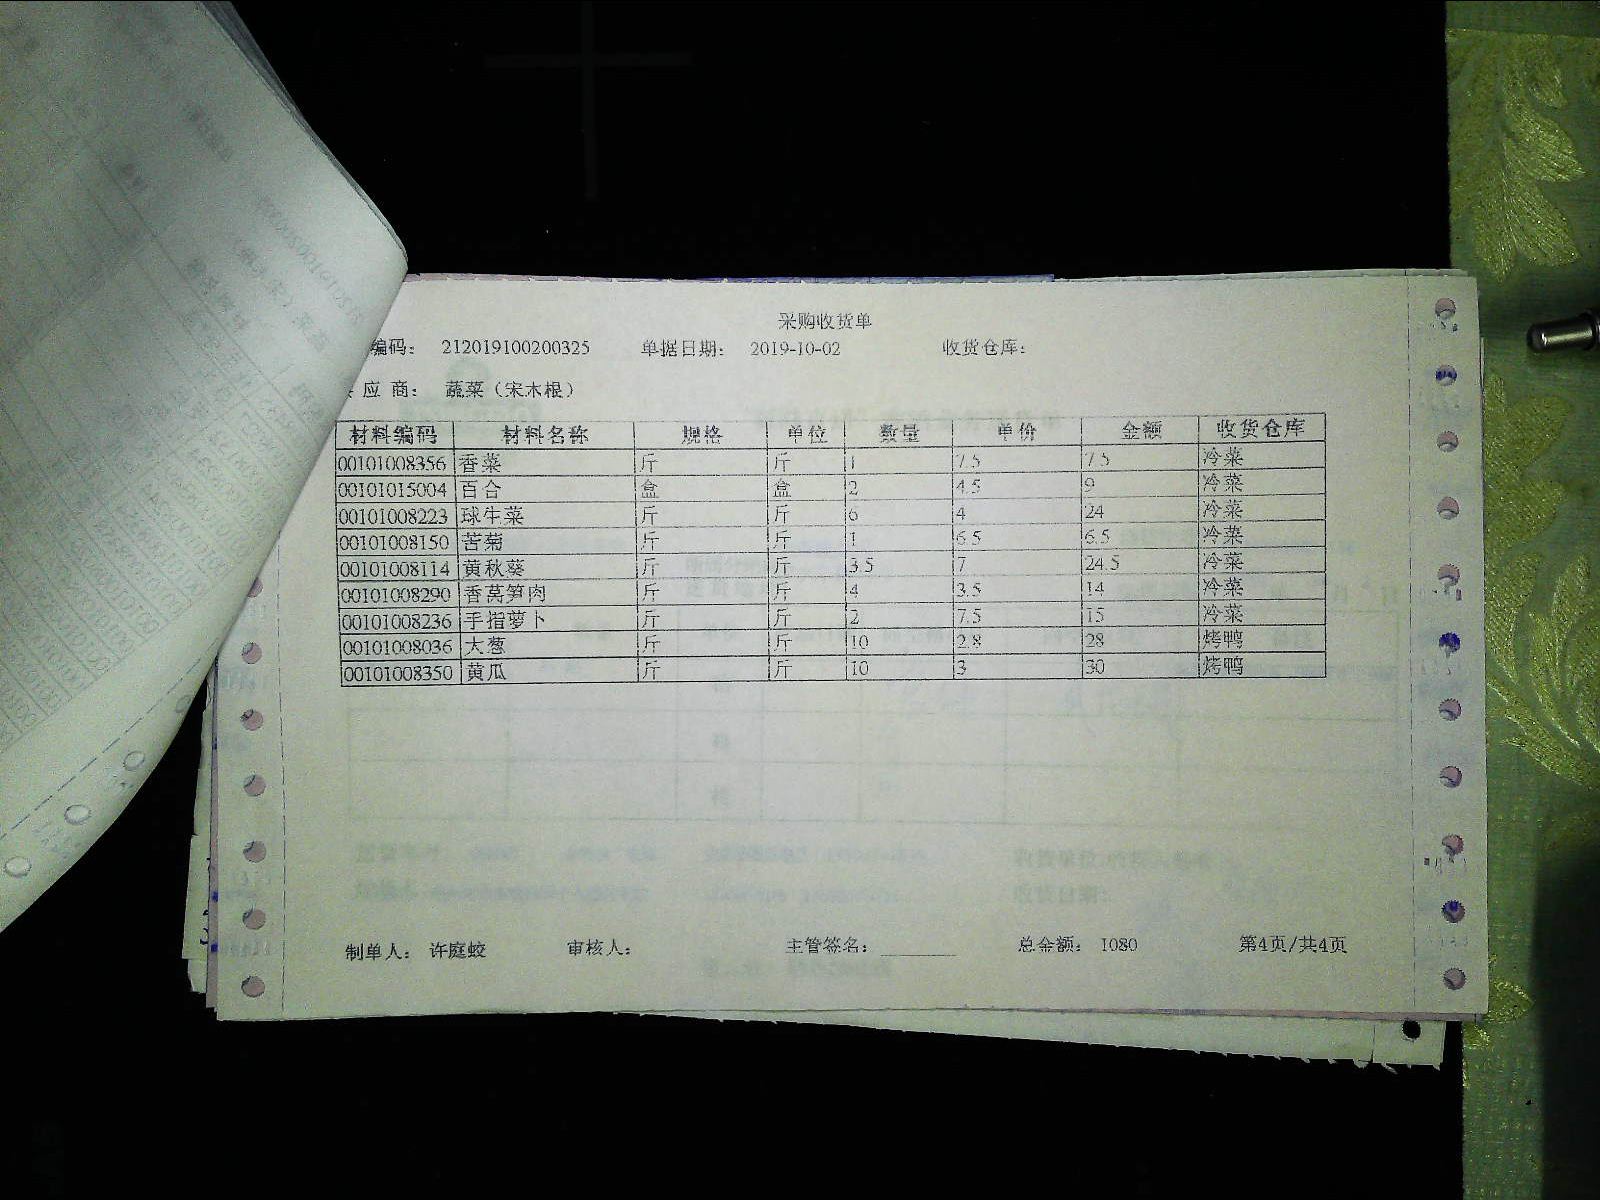 采购收货单
编码： 212019100200325 单据日期： 2019-10-02 收货仓库：
应 商： 蔬菜（宋木根）
材料编码 材料名称 规格 单位 数量 单价 金额 收货仓库
00101008356 香菜 斤 斤 1 7.5 7.5 冷菜
00101015004 百合 盒 盒 2 4.5 9 冷菜
00101008223 球生菜 斤 斤 6 4 24 冷菜
00101008150 苦菊 斤 斤 1 6.5 6.5 冷菜
00101008114 黄秋葵 斤 斤 3.5 7 24.5 冷菜
00101008290 香莴笋肉 斤 斤 4 3.5 14 冷菜
00101008236 手指萝卜 斤 斤 2 7.5 15 冷菜
00101008036 大葱 斤 斤 10 2.8 28 烤鸭
00101008350 黄瓜 斤 斤 10 3 30 烤鸭
制单人： 许庭蛟 审核人： 主管签名： 总金额： 1080 第4页/共4页